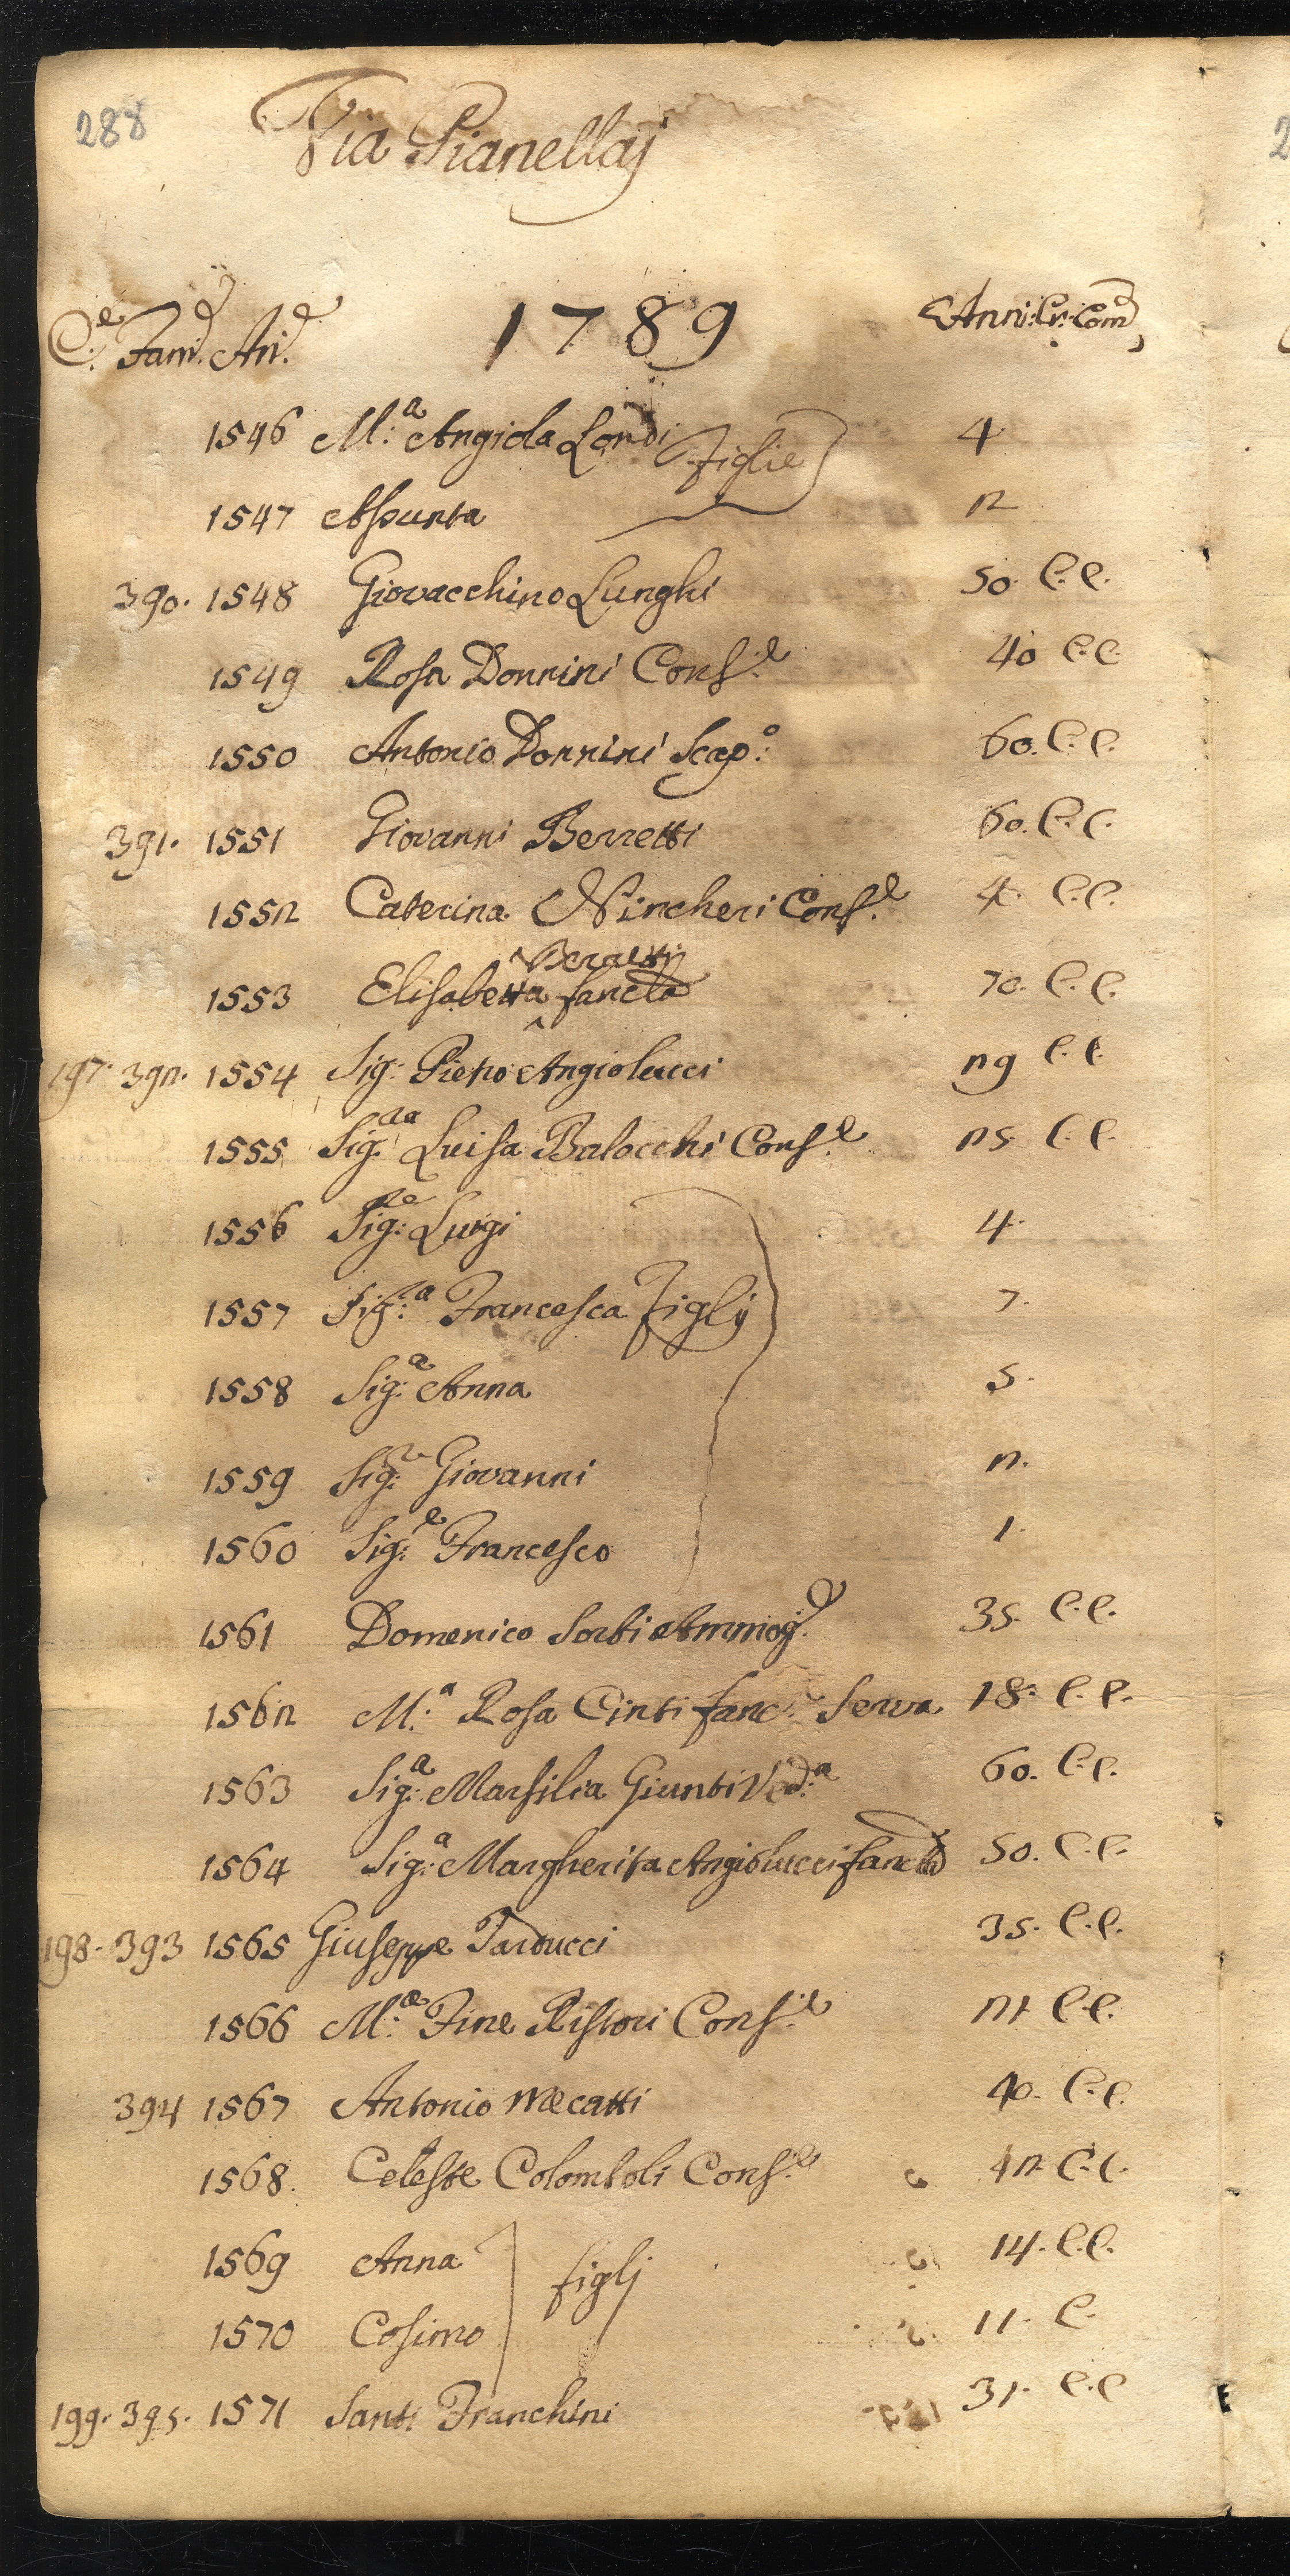 288
Via Pianellaj
C:e Fam:e An:e 1789 Anni: Cr: Com:
1546 M:a Angiola Londi Figlie 4
1547 Assunta 2
390. 1548 Giovacchino Lunghi 50. C.C.
1549 Rosa Donnini Cons:e 40 C.C.
1550 Antonio Donnini Scap:o 60. C.C.
391. 1551 Giovanni Berretti 60. C.C.
1552 Caterina Nincheri Cons:e C.C.
1553 Elisabetta fanc:la 70. C.C.
197. 392. 1554 Sig: Pietro Angiolucci 29 C.C.
1555 Sig:ra Luisa Balocchi Cons:e 25. C.C.
1556 Sig:re Luigi 4.
1557 Sig:ra Francesca Figlij 7.
1558 Sig:a Anna 5.
1559 Sig:r Giovanni 2.
1560 Sig:e Francesco 1.
1561 Domenico Sorbi Ammog: 35. C.C.
1562 M:a Rosa Cinti fanc: Serva 18. C.C.
1563 Sig:a Marsilia Giunti Ved:a 60. C.C.
1564 Sig:a Margherita Angiolucci fanc:la 50. C.C.
198. 393 1565 Giuseppe Tarducci 35. C.C.
1566 M:a Fine Ristori Cons:e 21 C.C.
394 1567 Antonio Mecatti 40. C.C.
1568. Celeste Colomboli Cons:e 42. C.C.
1569 Anna figlj 14. C.C.
1570 Cosimo 11. C.
199. 395. 1571 Santi Franchini 31. C.C